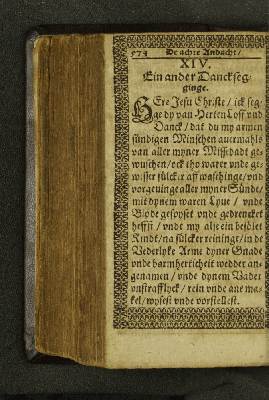 574 De achte Andacht/
XIV.
Ein ander Danckseg-
ginge.
HEre Jesu Christe / ick seg-
ge dy van Herten Loff vnd
Danck / dat du my armen
sündigen Minschen auermahls
van aller myner Missedadt ge-
wuschen / ock tho warer vnde ge-
wisser sülcker affwaschinge / vnd
vorgeuinge aller myner Sünde /
mit dynem waren Lyue / vnde
Blode gespyset vnde gedrencket
heffst / vnde my alse ein
Kindt / na sülcker reininge / in de
Vederlyke Arme dyner Gnade
vnde barmherticheit wedder an-
genamen / vnde dynem Vader
vnstrafflyck / rein vnde ane ma-
kel / wysest vnde vorstellest.